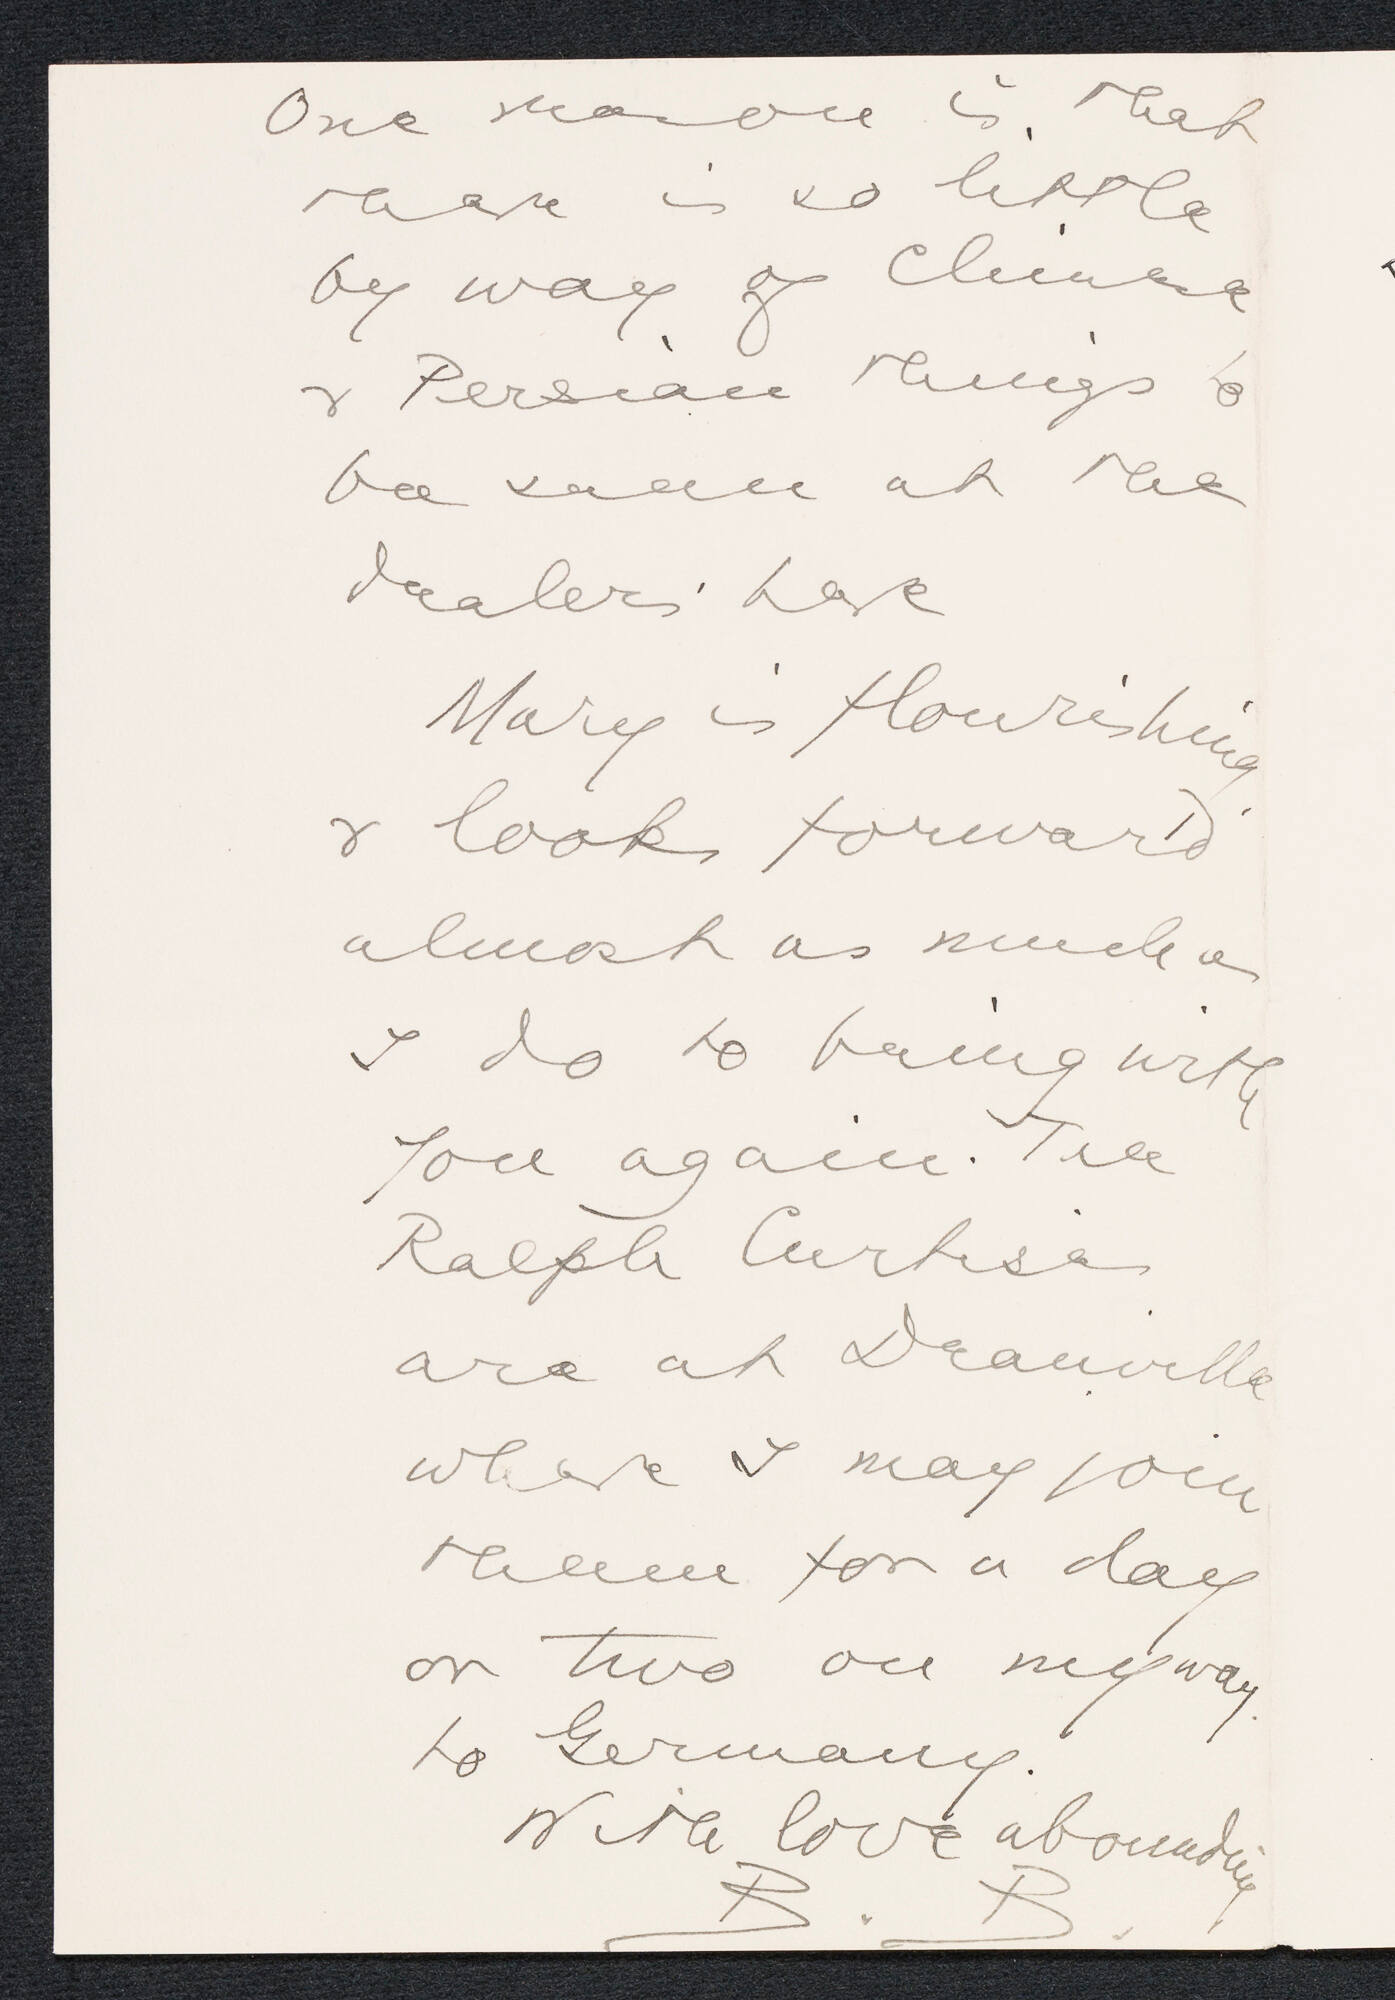 One reason is, that
there is so little
by way of Chinese
& Persian things to
be seen at the
dealers' here
Mary is flourishing
& looks forward
almost as much as
I do to being with
you again. The
Ralph Curtises
are at Deauville
where I may join
them for a day
or two on my way
to Germany.
With love abounding
B. B.